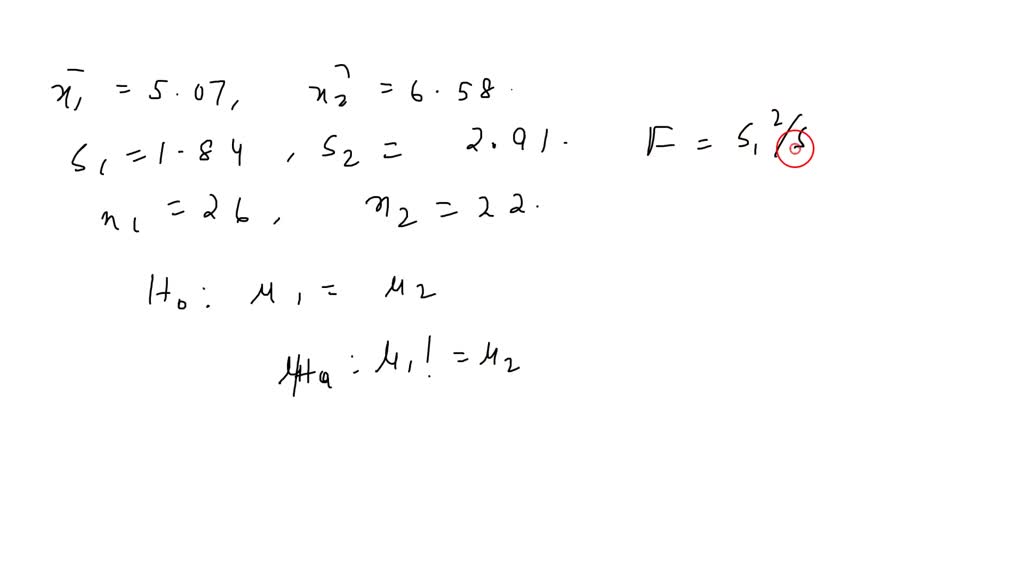 x̄₁ = 5.07, x̄₂ = 6.58.
s₁ = 1.84, s₂ = 2.91. F = s₁²/s
n₁ = 26, n₂ = 22.
H₀: μ₁ = μ₂
Ha: μ₁ != μ₂